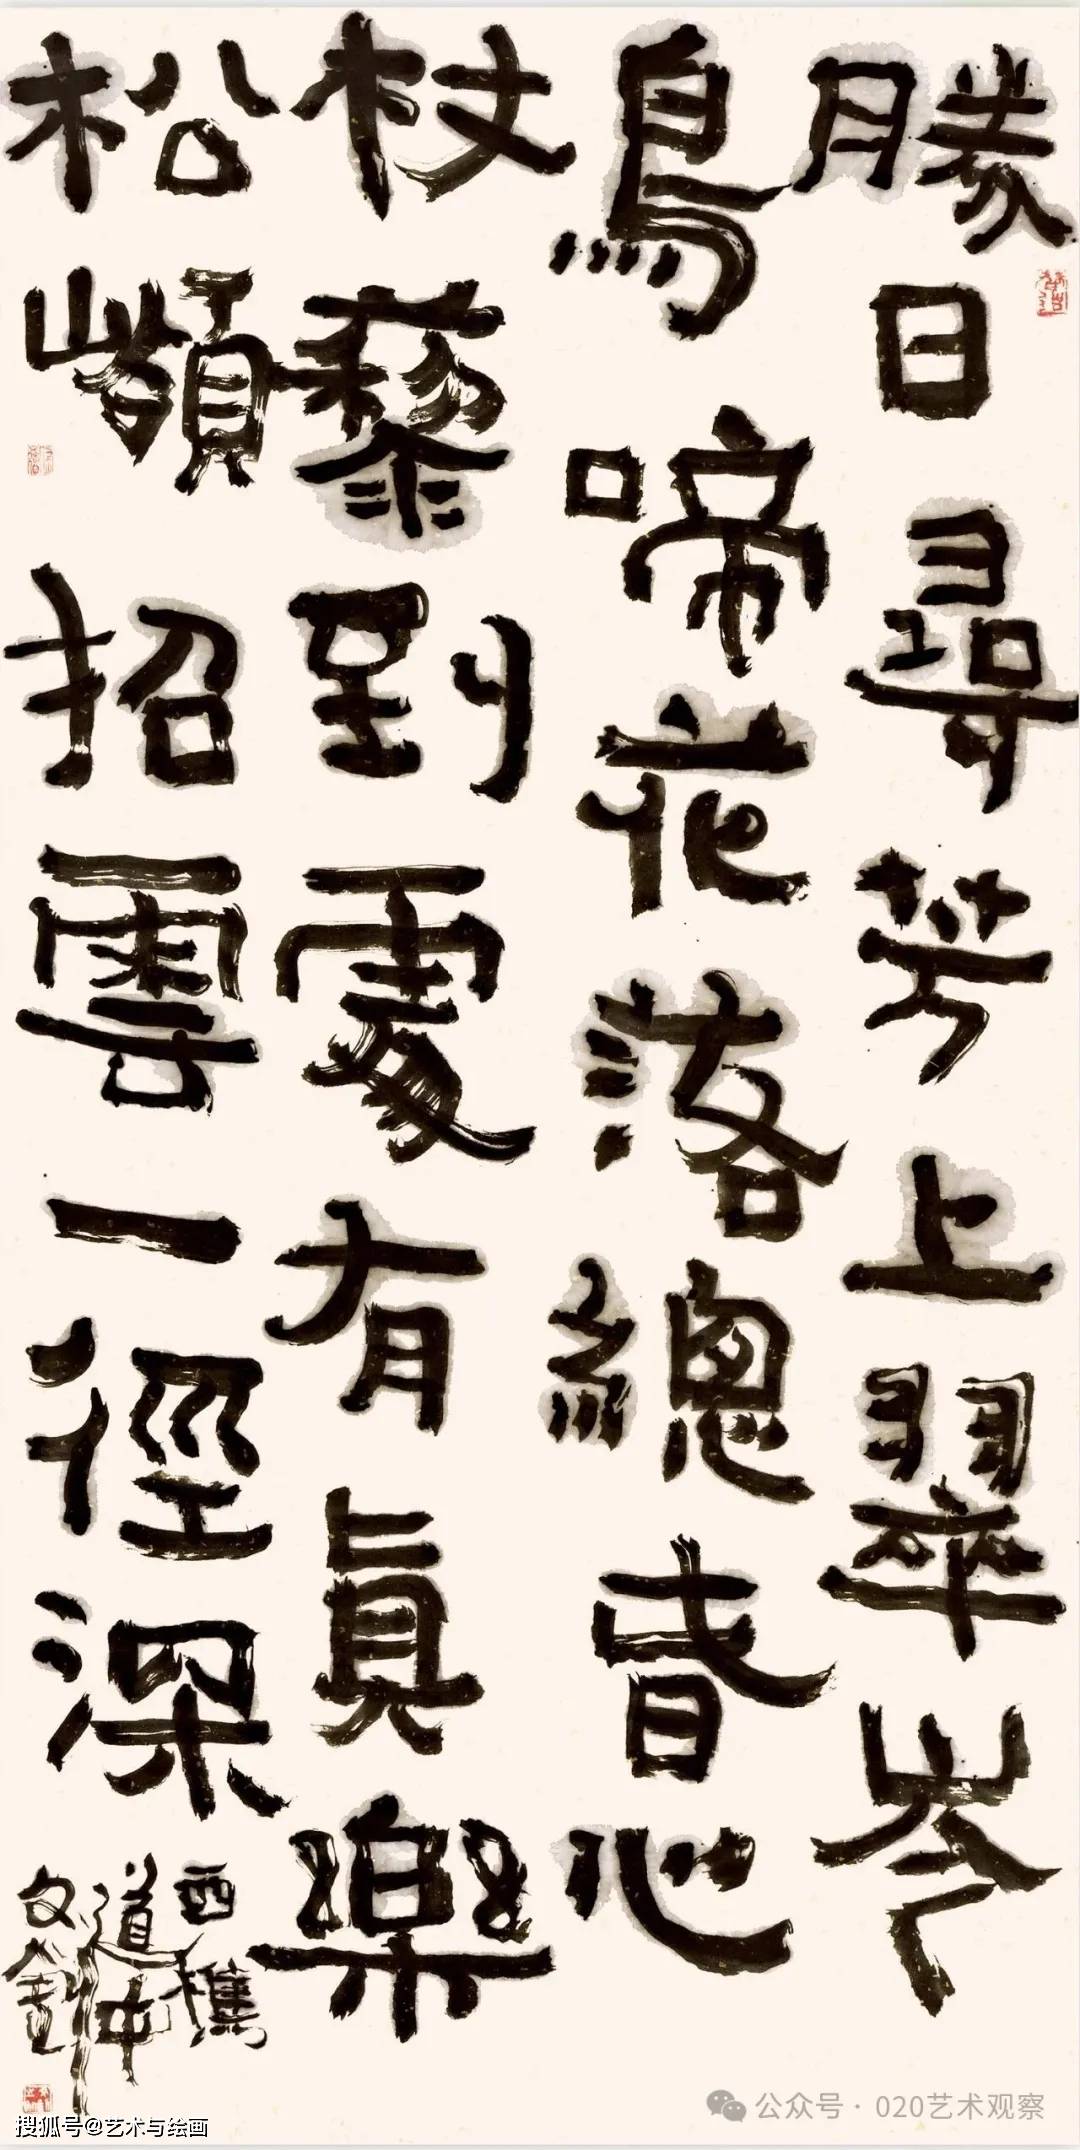 勝日尋芳上翠岑
鳥啼花落總春心
杖藜到處有眞樂
松巔招雲一徑深
西樵
道中
文釗
公众号·020艺术观察
搜狐号@艺术与绘画